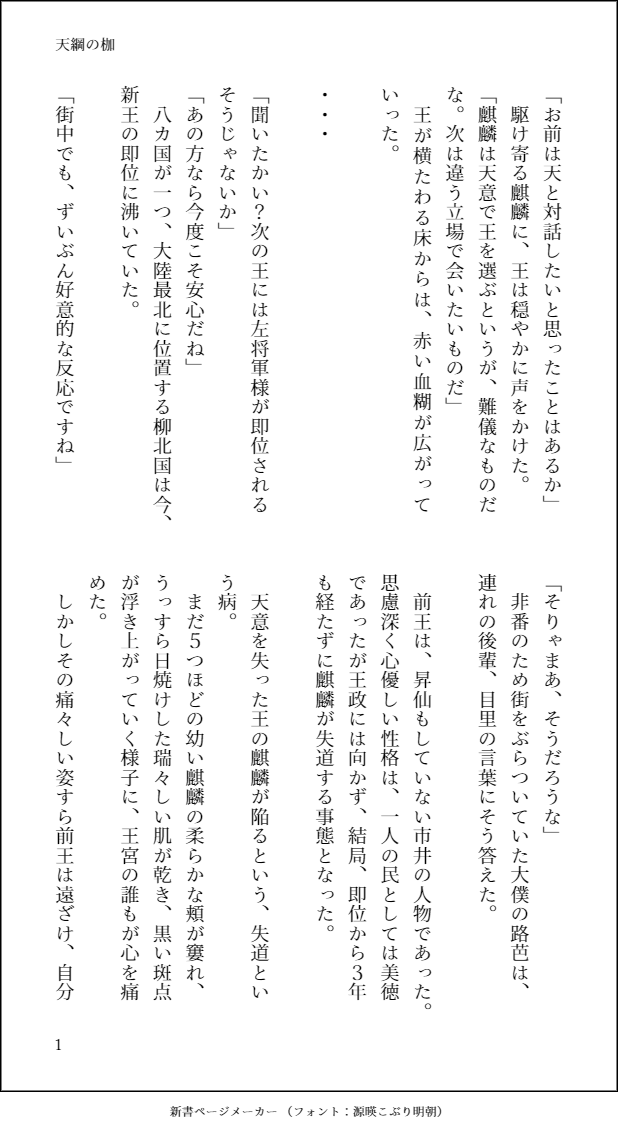 天綱の枷
「お前は天と対話したいと思ったことはあるか」
駆け寄る麒麟に、王は穏やかに声をかけた。
「麒麟は天意で王を選ぶというが、難儀なものだ
な。次は違う立場で会いたいものだ」
王が横たわる床からは、赤い血糊が広がって
いった。
・・・
「聞いたかい？次の王には左将軍様が即位される
そうじゃないか」
「あの方なら今度こそ安心だね」
八カ国が一つ、大陸最北に位置する柳北国は今、
新王の即位に沸いていた。
「街中でも、ずいぶん好意的な反応ですね」
「そりゃまあ、そうだろうな」
非番のため街をぶらついていた大僕の路芭は、
連れの後輩、目里の言葉にそう答えた。
前王は、昇仙もしていない市井の人物であった。
思慮深く心優しい性格は、一人の民としては美徳
であったが王政には向かず、結局、即位から３年
も経たずに麒麟が失道する事態となった。
天意を失った王の麒麟が陥るという、失道とい
う病。
まだ５つほどの幼い麒麟の柔らかな頬が窶れ、
うっすら日焼けした瑞々しい肌が乾き、黒い斑点
が浮き上がっていく様子に、王宮の誰もが心を痛
めた。
しかしその痛々しい姿すら前王は遠ざけ、自分
1
新書ページメーカー（フォント：源暎こぶり明朝）